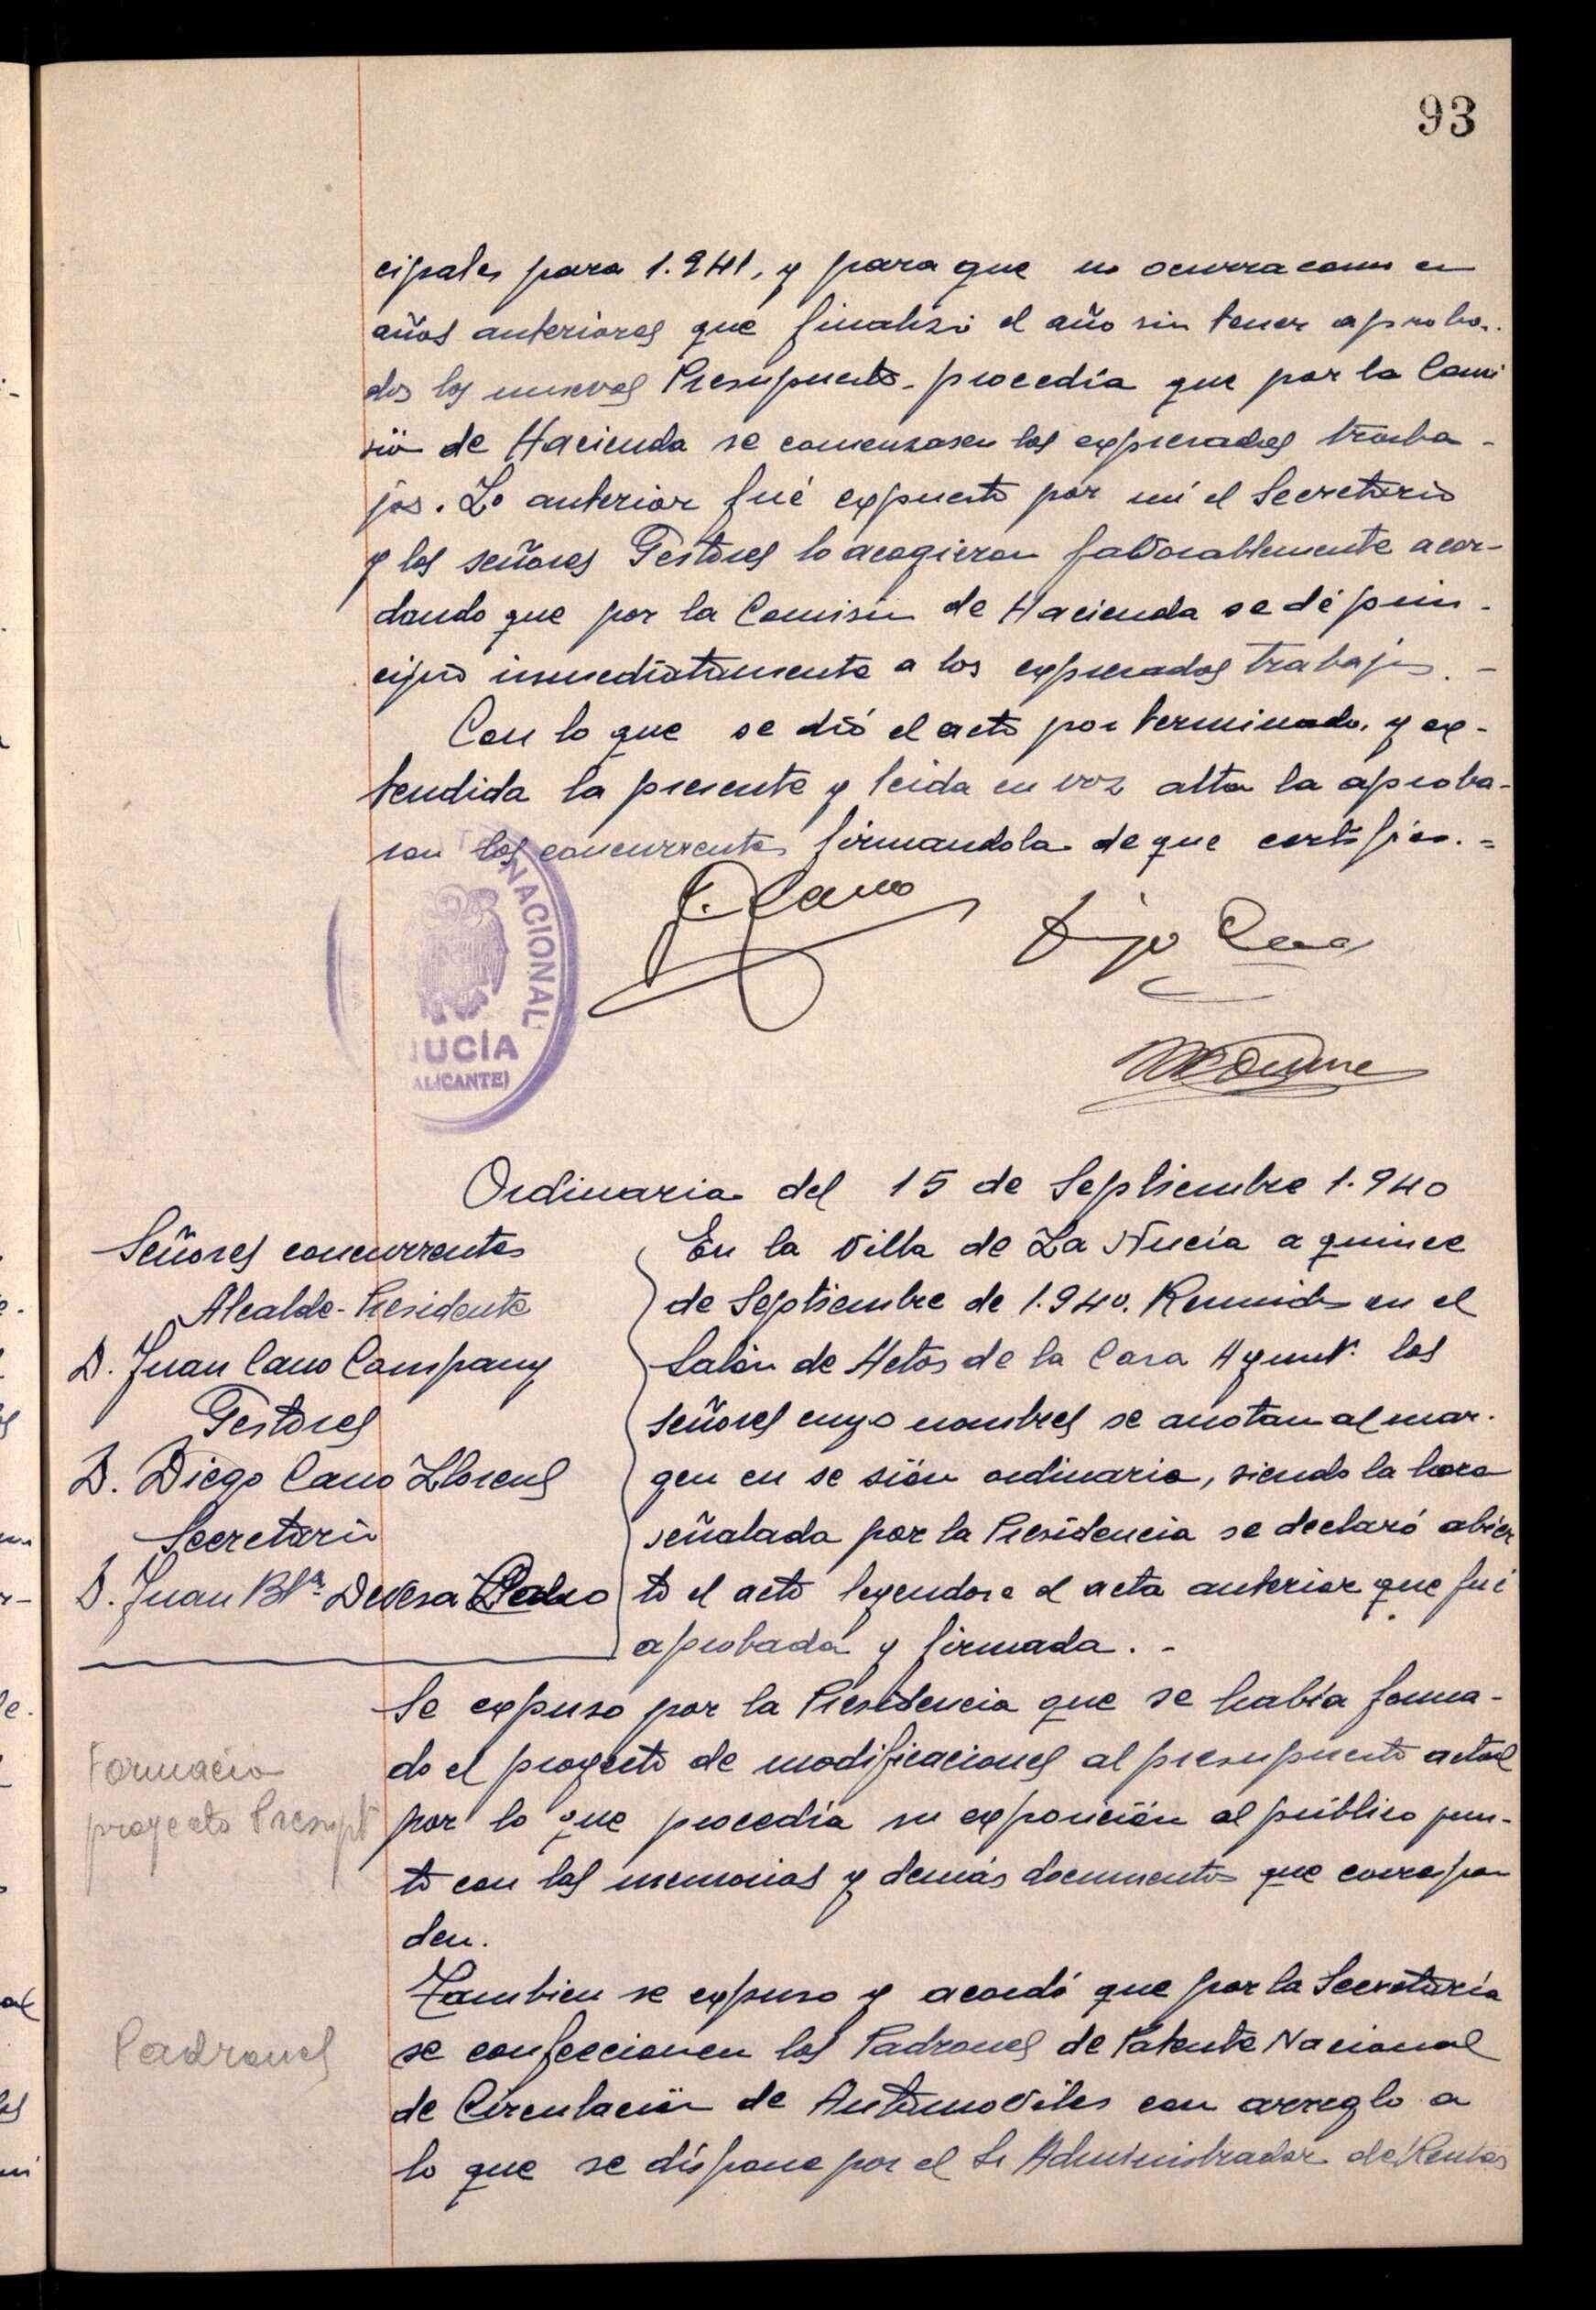 93
cipales para 1.941, y para que no ocurra como en
años anteriores que finalizó el año sin tener aproba-
dos los nuevos Presupuestos procedía que por la Comi
sión de Hacienda se comenzasen los expresados traba-
jos. Lo anterior fué expuesto por mí el Secretario
y los señores Gestores lo acogieron favorablemente acor-
dando que por la Comisión de Hacienda se dé prin-
cipio inmediatamente a los expresados trabajos. -
Con lo que se dió el acto por terminado, y ex-
tendida la presente y leida en voz alta la aproba-
ron los concurrentes firmandola de que certifico. =
NACIONAL
NUCÍA
(ALICANTE)
J. Cano
Diego Cano
Ordinaria del 15 de Septiembre 1.940
Señores concurrentes
Alcalde-Presidente
D. Juan Cano Company
Gestores
D. Diego Cano Llorens
Secretario
D. Juan Btª Devesa
En la Villa de La Nucía a quince
de Septiembre de 1.940. Reunidos en el
Salón de Actos de la Casa Ayuntº. los
señores cuyo nombres se anotan al mar-
gen en se sión ordinaria, siendo la hora
señalada por la Presidencia se declaró abier
to el acto leyendose el acta anterior que fué
aprobada y firmada. -
Formacio
proyecto Presupt
Se expuso por la Presidencia que se había forma-
do el proyecto de modificaciones al presupuesto actual
por lo que procedía su exposición al público jun-
to con las memorias y demás documentos que correspon
den.
Padrones
Tambien se expuso y acordó que por la Secretaría
se confeccionen los Padrones de Patente Nacional
de Circulación de Automoviles con arreglo a
lo que se dispone por el Sr Administrador de Rentas